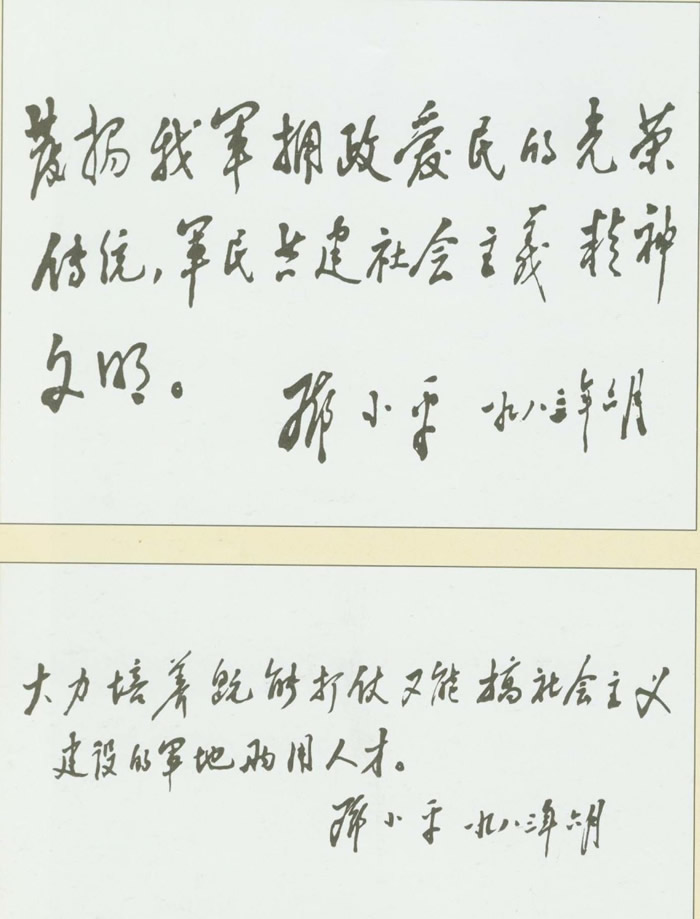 發扬我军拥政爱民的光荣
传统,军民共建社会主義精神
文明。
邓小平 一九八三年六月
大力培养既能打仗又能搞社会主义
建设的军地两用人才。
邓小平 一九八三年六月